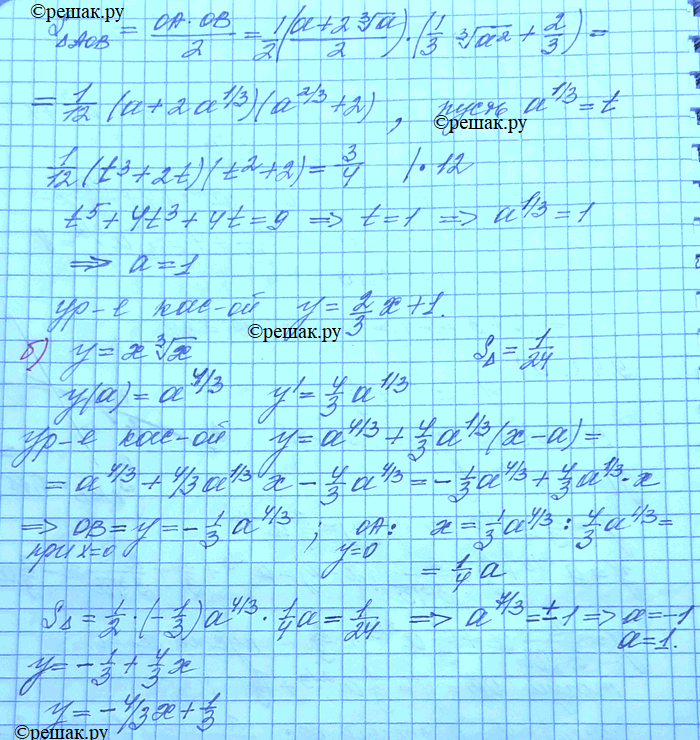 ©решак.ру
S△AOB = OA·OB/2 = 1/2 (a+2∛a)/2)·(1/3 ∛a2 + 2/3) =
= 1/12 (a+2a^1/3)(a^2/3+2), пусть a^1/3 = t
©решак.ру
1/12 (t^3+2t)(t^2+2) = 3/4 |·12
t^5+4t^3+4t=9 ⇒ t=1 ⇒ a^1/3=1
⇒ a=1
ур-е кас-ой y=2/3 x+1.
©решак.ру
б) y=x∛x S△=1/24
y(a)=a^4/3 y'=4/3 a^1/3
ур-е кас-ой y=a^4/3+4/3 a^1/3(x-a)=
= a^4/3+4/3 a^1/3 x - 4/3 a^4/3 = -1/3 a^4/3+4/3 a^1/3·x
⇒ OB=y=-1/3 a^4/3 ; OA: x=1/3 a^4/3 : 4/3 a^1/3=
при x=0 y=0 = 1/4 a
S△=1/2·(-1/3)a^4/3·1/4 a=1/24 ⇒ a^7/3=±1 ⇒ a=-1
a=1.
y=-1/3+4/3 x
y=-4/3x+1/3
©решак.ру
©решак.ру